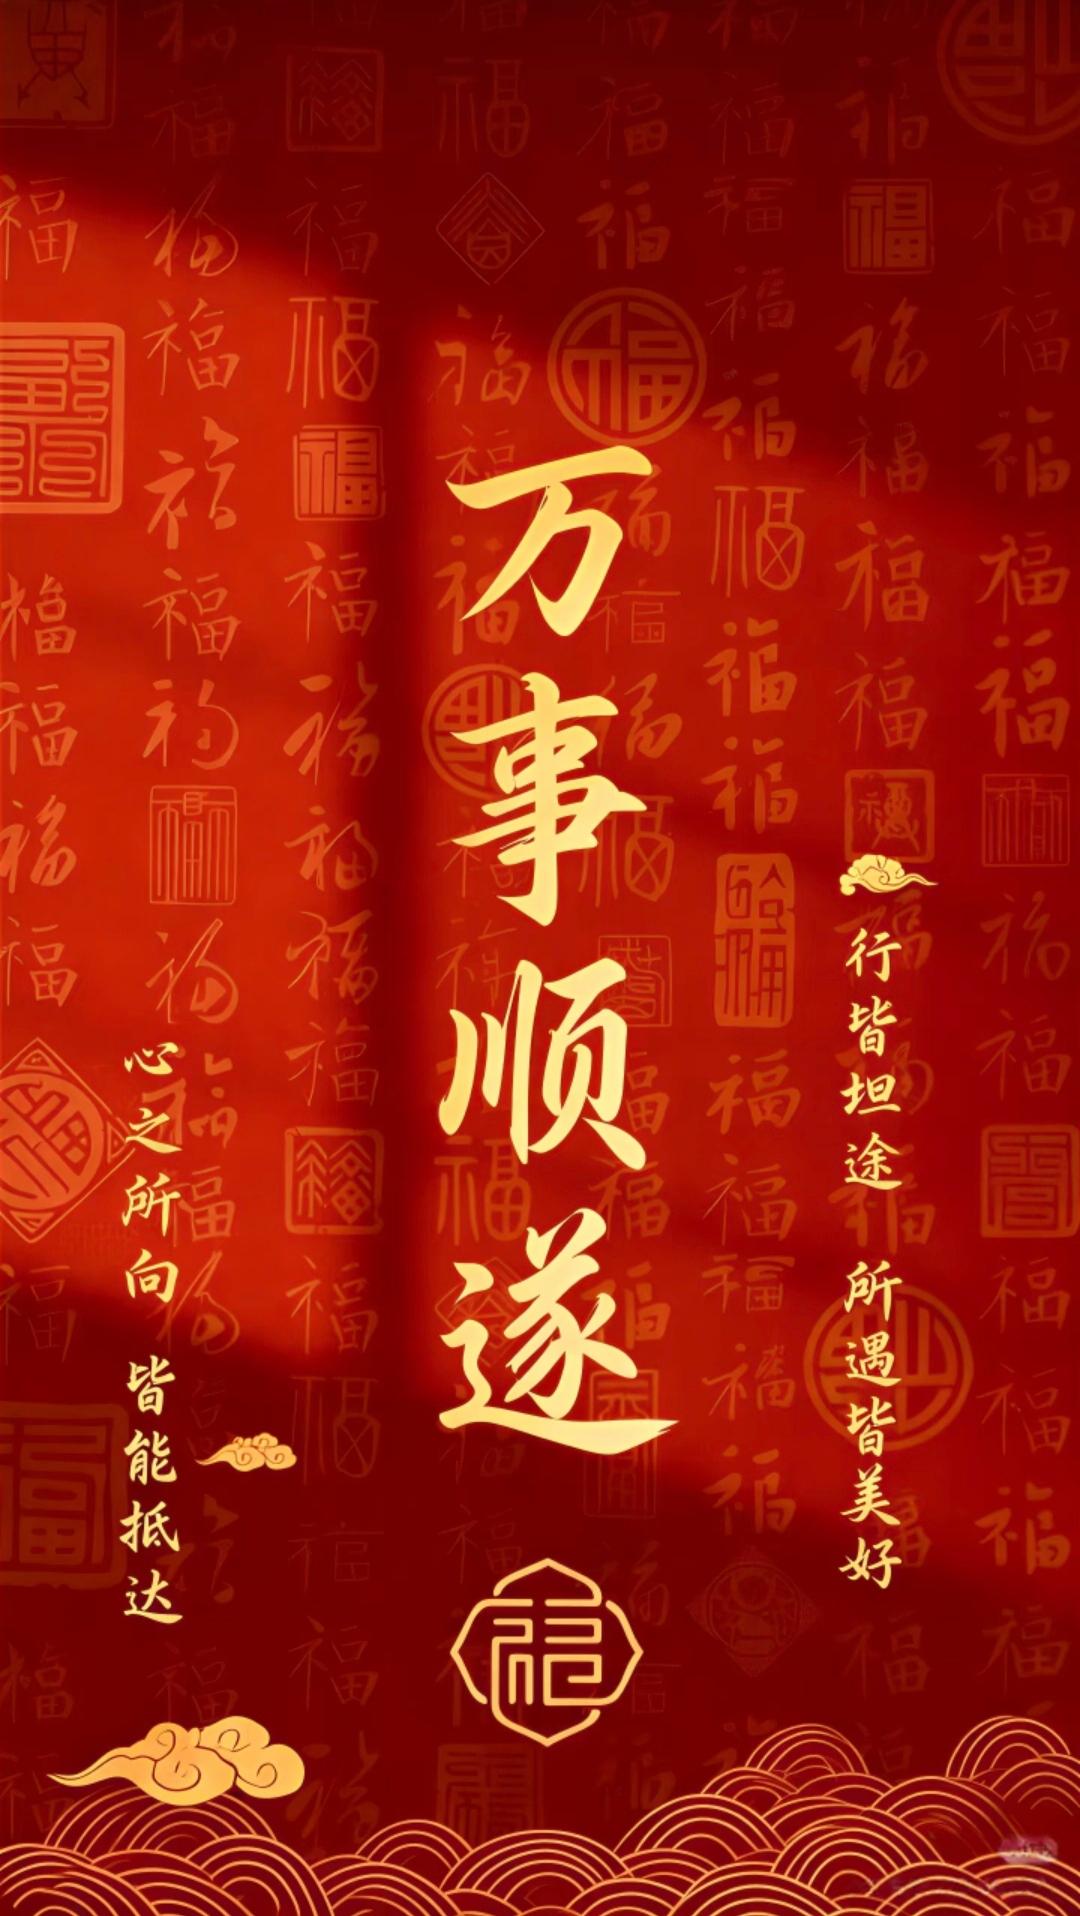 万事顺遂
行皆坦途 所遇皆美好
心之所向 皆能抵达
福